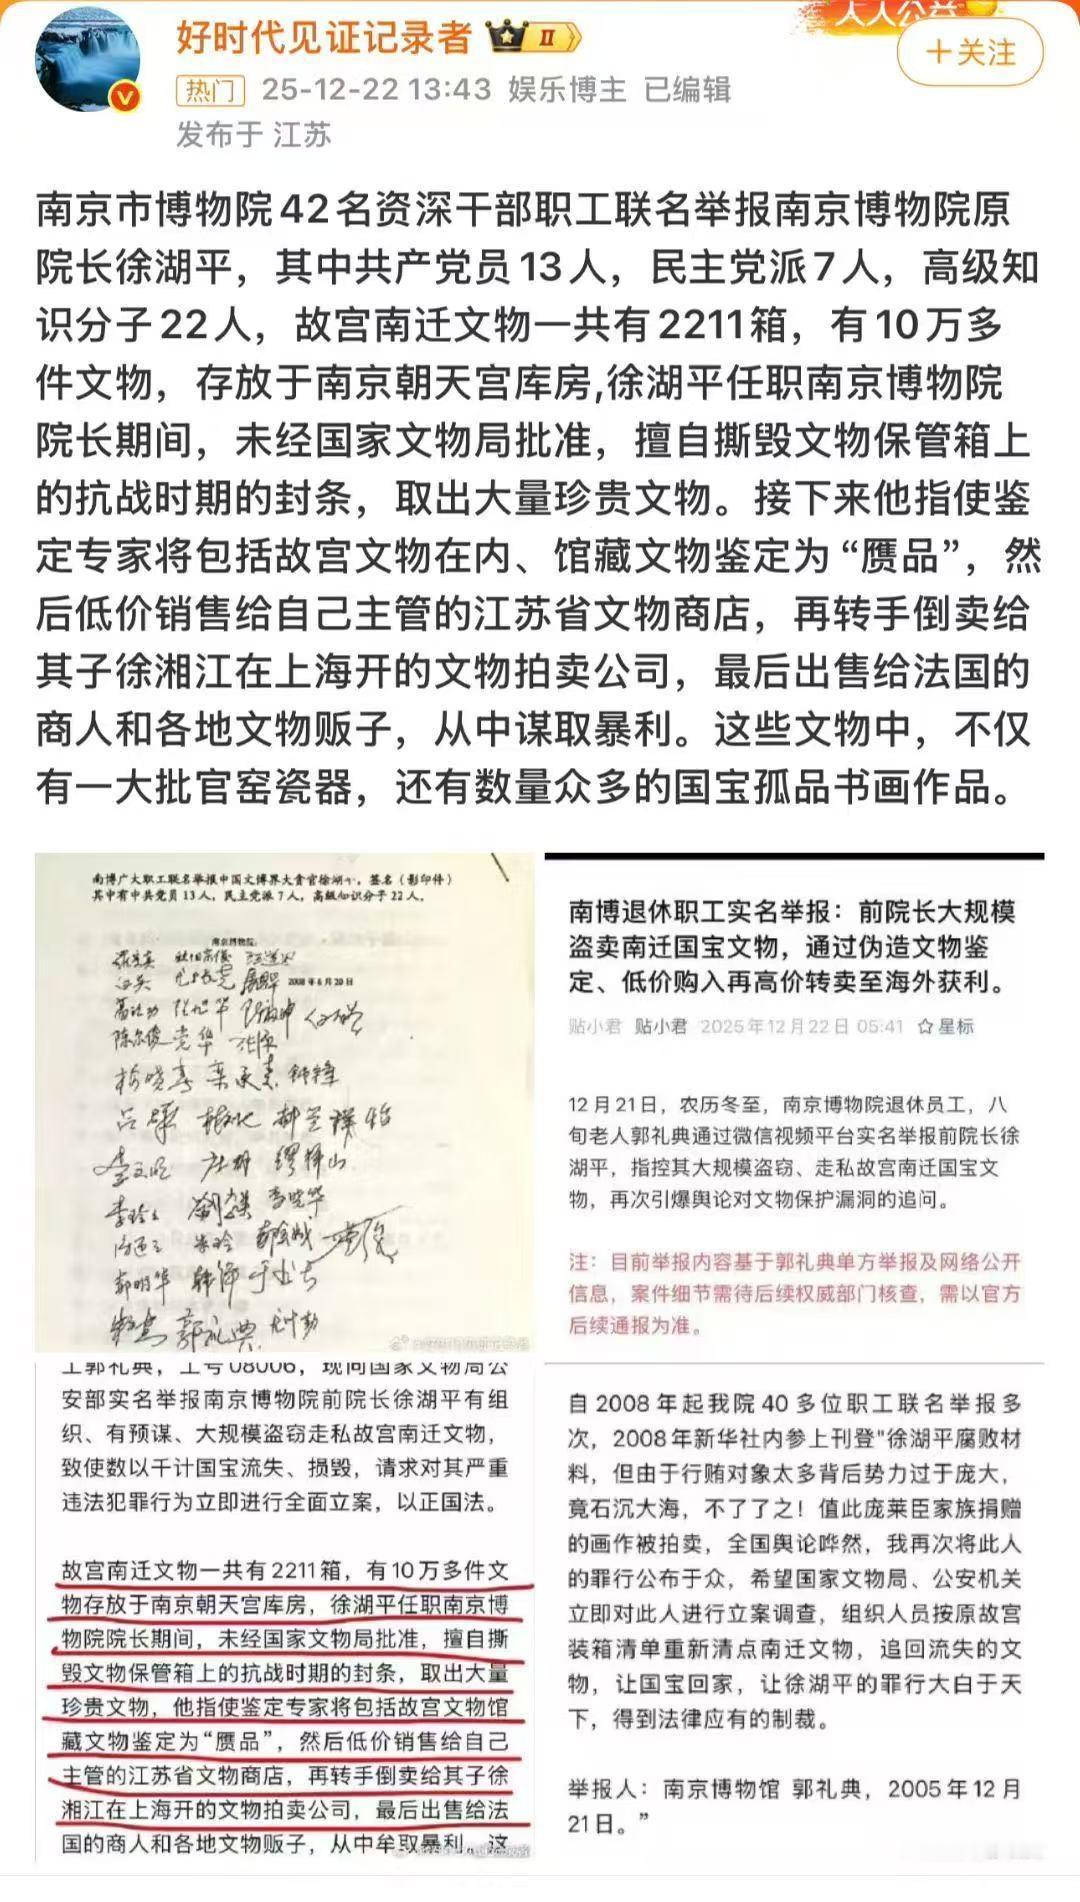 人人公益
好时代见证记录者
II
+关注
热门 25-12-22 13:43 娱乐博主 已编辑
发布于 江苏
南京市博物院42名资深干部职工联名举报南京博物院原
院长徐湖平，其中共产党员13人，民主党派7人，高级知
识分子22人，故宫南迁文物一共有2211箱，有10万多
件文物，存放于南京朝天宫库房,徐湖平任职南京博物院
院长期间，未经国家文物局批准，擅自撕毁文物保管箱上
的抗战时期的封条，取出大量珍贵文物。接下来他指使鉴
定专家将包括故宫文物在内、馆藏文物鉴定为“赝品”，然
后低价销售给自己主管的江苏省文物商店，再转手倒卖给
其子徐湘江在上海开的文物拍卖公司，最后出售给法国的
商人和各地文物贩子，从中谋取暴利。这些文物中，不仅
有一大批官窑瓷器，还有数量众多的国宝孤品书画作品。
南博广大职工联名举报中国文博界大贪官徐湖平，签名（影印件）
其中有中共党员13人，民主党派7人，高级知识分子22人。
南京博物院
2008年6月20日
郭礼典
南博退休职工实名举报：前院长大规模
盗卖南迁国宝文物，通过伪造文物鉴
定、低价购入再高价转卖至海外获利。
贴小君 贴小君 2025年12月22日 05:41 ☆星标
12月21日，农历冬至，南京博物院退休员工，八
旬老人郭礼典通过微信视频平台实名举报前院长徐
湖平，指控其大规模盗窃、走私故宫南迁国宝文
物，再次引爆舆论对文物保护漏洞的追问。
注：目前举报内容基于郭礼典单方举报及网络公开
信息，案件细节需待后续权威部门核查，需以官方
后续通报为准。
工郭礼典，工号08006，现向国家文物局公
安部实名举报南京博物院前院长徐湖平有组
织、有预谋、大规模盗窃走私故宫南迁文物，
致使数以千计国宝流失、损毁，请求对其严重
违法犯罪行为立即进行全面立案，以正国法。
故宫南迁文物一共有2211箱，有10万多件文
物存放于南京朝天宫库房，徐湖平任职南京博
物院院长期间，未经国家文物局批准，擅自撕
毁文物保管箱上的抗战时期的封条，取出大量
珍贵文物，他指使鉴定专家将包括故宫文物馆
藏文物鉴定为“赝品”，然后低价销售给自己
主管的江苏省文物商店，再转手倒卖给其子徐
湘江在上海开的文物拍卖公司，最后出售给法
国的商人和各地文物贩子，从中牟取暴利。这
自2008年起我院40多位职工联名举报多
次，2008年新华社内参上刊登"徐湖平腐败材
料，但由于行贿对象太多背后势力过于庞大，
竟石沉大海，不了了之！值此庞莱臣家族捐赠
的画作被拍卖，全国舆论哗然，我再次将此人
的罪行公布于众，希望国家文物局、公安机关
立即对此人进行立案调查，组织人员按原故宫
装箱清单重新清点南迁文物，追回流失的文
物，让国宝回家，让徐湖平的罪行大白于天
下，得到法律应有的制裁。
举报人：南京博物馆 郭礼典，2005年12月
21日。”